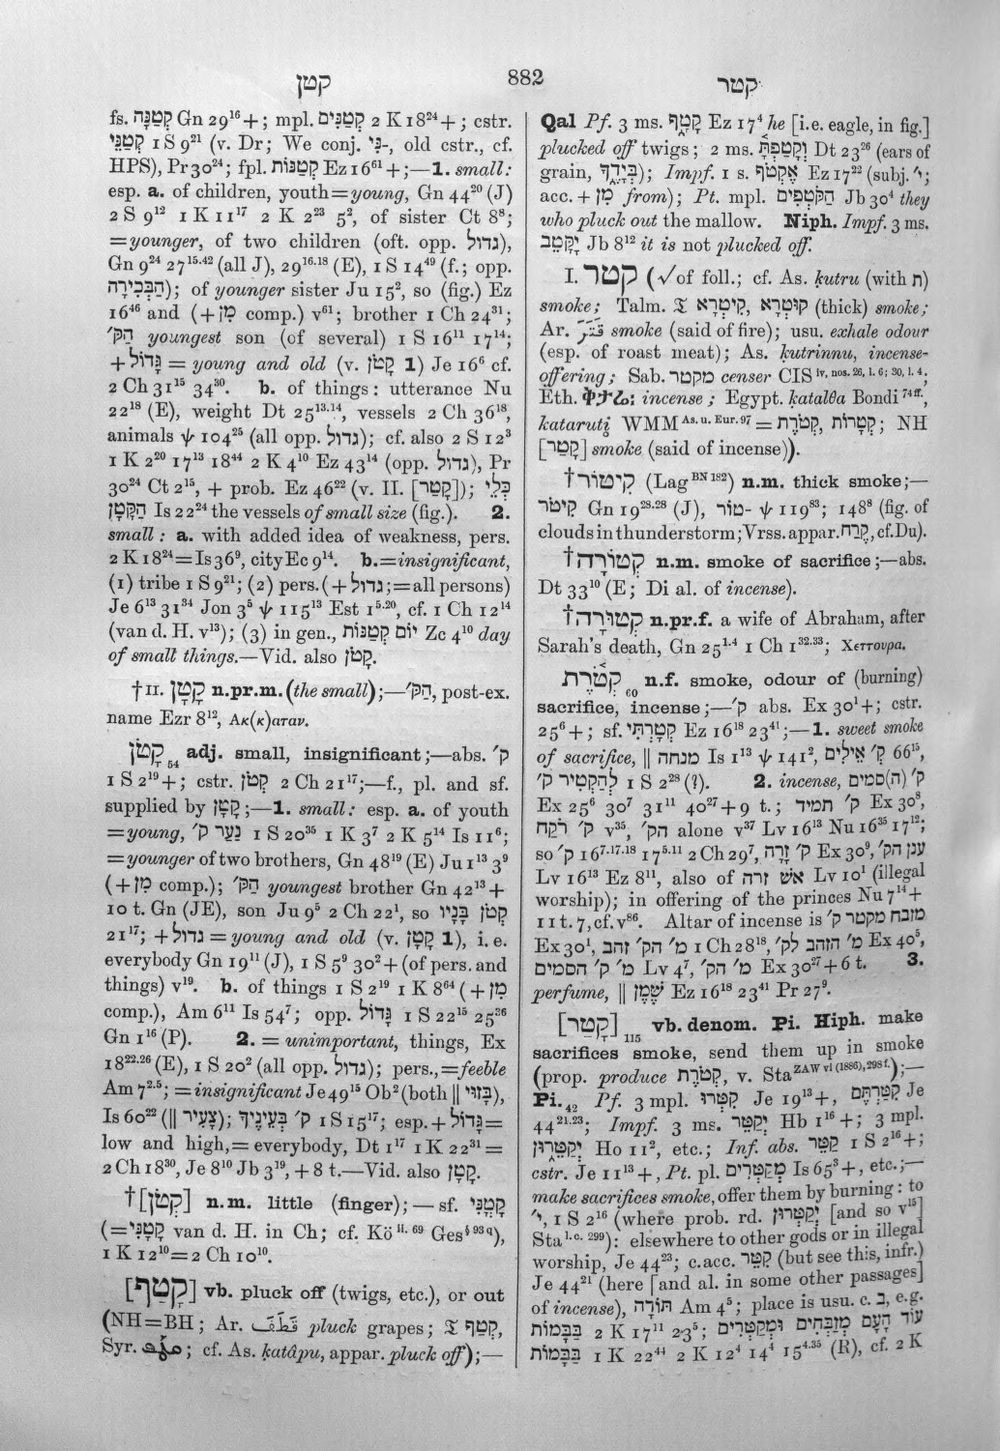 קטן
882
קטר
fs. קְטַנָּה Gn 29¹⁶ +; mpl. קְטַנִּים 2 K 18²⁴ +; cstr.
קְטַנֵּי 1 S 9²¹ (v. Dr; We conj. נֵּי-, old cstr., cf.
HPS), Pr 30²⁴; fpl. קְטַנּוֹת Ez 16⁶¹ +;—1. small:
esp. a. of children, youth=young, Gn 44²⁰ (J)
2 S 9¹² 1 K 11¹⁷ 2 K 2²³ 5², of sister Ct 8⁸;
=younger, of two children (oft. opp. גדול),
Gn 9²⁴ 27¹⁵·⁴² (all J), 29¹⁶·¹⁸ (E), 1 S 14⁴⁹ (f.; opp.
הַבְּכִירָה); of younger sister Ju 15², so (fig.) Ez
16⁴⁶ and (+מִן comp.) v⁶¹; brother 1 Ch 24³¹;
הַקּ׳ youngest son (of several) 1 S 16¹¹ 17¹⁴;
+גָּדוֹל = young and old (v. קָטֹן 1) Je 16⁶ cf.
2 Ch 31¹⁵ 34³⁰. b. of things: utterance Nu
22¹⁸ (E), weight Dt 25¹³·¹⁴, vessels 2 Ch 36¹⁸,
animals ψ 104²⁵ (all opp. גדול); cf. also 2 S 12³
1 K 2²⁰ 17¹³ 18⁴⁴ 2 K 4¹⁰ Ez 43¹⁴ (opp. גדול), Pr
30²⁴ Ct 2¹⁵, + prob. Ez 46²² (v. II. [קטר]); כְּלֵי
הַקָּטָן Is 22²⁴ the vessels of small size (fig.). 2.
small: a. with added idea of weakness, pers.
2 K 18²⁴=Is 36⁹, city Ec 9¹⁴. b.=insignificant,
(1) tribe 1 S 9²¹; (2) pers. (+גדול;=all persons)
Je 6¹³ 31³⁴ Jon 3⁵ ψ 115¹³ Est 1⁵·²⁰, cf. 1 Ch 12¹⁴
(van d. H. v¹³); (3) in gen., יוֹם קְטַנּוֹת Zc 4¹⁰ day
of small things.—Vid. also קָטֹן.
†II. קָטָן n.pr.m. (the small);—הַקּ׳, post-ex.
name Ezr 8¹², Ακ(κ)αταν.
קָטֹן₅₄ adj. small, insignificant;—abs. ק׳
1 S 2¹⁹ +; cstr. קְטֹן 2 Ch 21¹⁷;—f., pl. and sf.
supplied by קָטָן;—1. small: esp. a. of youth
=young, נַעַר ק׳ 1 S 20³⁵ 1 K 3⁷ 2 K 5¹⁴ Is 11⁶;
=younger of two brothers, Gn 48¹⁹ (E) Ju 1¹³ 3⁹
(+מִן comp.); הַקּ׳ youngest brother Gn 42¹³ +
10 t. Gn (JE), son Ju 9⁵ 2 Ch 22¹, so קְטֹן בָּנָיו
21¹⁷; +גדול = young and old (v. קָטָן 1), i.e.
everybody Gn 19¹¹ (J), 1 S 5⁹ 30² + (of pers. and
things) v¹⁹. b. of things 1 S 2¹⁹ 1 K 8⁶⁴ (+מִן
comp.), Am 6¹¹ Is 54⁷; opp. גָּדוֹל 1 S 22¹⁵ 25³⁶
Gn 1¹⁶ (P). 2. = unimportant, things, Ex
18²²·²⁶ (E), 1 S 20² (all opp. גדול); pers.,=feeble
Am 7²·⁵; =insignificant Je 49¹⁵ Ob² (both || בָּזוּי),
Is 60²² (|| צָעִיר); ק׳ בְּעֵינֶיךָ 1 S 15¹⁷; esp.+גָּדוֹל=
low and high,=everybody, Dt 1¹⁷ 1 K 22³¹ =
2 Ch 18³⁰, Je 8¹⁰ Jb 3¹⁹, + 8 t.—Vid. also קָטָן.
†[קֹטֶן] n.m. little (finger);—sf. קָטֳנִּי
(=קָטָנִּי van d. H. in Ch; cf. Kö ii. 69 Ges § 93 q),
1 K 12¹⁰=2 Ch 10¹⁰.
[קָטַף] vb. pluck off (twigs, etc.), or out
(NH=BH; Ar. قَطَفَ pluck grapes; 𝔗 קְטַף,
Syr. ܩܛܦ; cf. As. ḳatâpu, appar. pluck off);—
Qal Pf. 3 ms. קָטָף Ez 17⁴ he [i.e. eagle, in fig.]
plucked off twigs; 2 ms. וְקָטַפְתָּ Dt 23²⁶ (ears of
grain, בְּיָדֶךָ); Impf. 1 s. אֶקְטֹף Ez 17²² (subj. י׳;
acc. + מִן from); Pt. mpl. הַקֹּטְפִים Jb 30⁴ they
who pluck out the mallow. Niph. Impf. 3 ms.
יִקָּטֵף Jb 8¹² it is not plucked off.
I. קטר (√of foll.; cf. As. ḳutru (with ת)
smoke; Talm. 𝔗 קִיטְרָא, קוּטְרָא (thick) smoke;
Ar. قُتَرٌ smoke (said of fire); usu. exhale odour
(esp. of roast meat); As. ḳutrinnu, incense-
offering; Sab. מקטר censer CIS iv, nos. 26, l. 6; 30, l. 4;
Eth. ቅታሬ፡ incense; Egypt. ḳatalθa Bondi 74 ff,
kataruti WMM As. u. Eur. 97 = קְטֹרֶת, קְטֹרוֹת; NH
[קטר] smoke (said of incense)).
†קִיטוֹר (Lag BN 182) n.m. thick smoke;—
קִיטֹר Gn 19²⁸·²⁸ (J), טוֹר- ψ 119⁸³; 148⁸ (fig. of
clouds in thunderstorm; Vrss. appar. קֶרַח, cf. Du).
†קְטוֹרָה n.m. smoke of sacrifice;—abs.
Dt 33¹⁰ (E; Di al. of incense).
†קְטוּרָה n.pr.f. a wife of Abraham, after
Sarah's death, Gn 25¹·⁴ 1 Ch 1³²·³³; Χεττουρα.
קְטֹרֶת₆₀ n.f. smoke, odour of (burning)
sacrifice, incense;—ק׳ abs. Ex 30¹ +; cstr.
25⁶ +; sf. קְטָרְתִּי Ez 16¹⁸ 23⁴¹;—1. sweet smoke
of sacrifice, || מנחה Is 1¹³ ψ 141², ק׳ אֵילִים 66¹⁵,
לְהַקְטִיר ק׳ 1 S 2²⁸ (?). 2. incense, ק׳ (ה)סמים
Ex 25⁶ 30⁷ 31¹¹ 40²⁷ + 9 t.; ק׳ תמיד Ex 30⁸,
ק׳ רֹקַח v³⁵, הק׳ alone v³⁷ Lv 16¹³ Nu 16³⁵ 17¹²;
so ק׳ 16⁷·¹⁷·¹⁸ 17⁵·¹¹ 2 Ch 29⁷, ק׳ זָרָה Ex 30⁹, ענן הק׳
Lv 16¹³ Ez 8¹¹, also of אֵשׁ זרה Lv 10¹ (illegal
worship); in offering of the princes Nu 7¹⁴ +
11 t. 7, cf. v⁸⁶. Altar of incense is מזבח מקטר ק׳
Ex 30¹, מ׳ הק׳ זהב 1 Ch 28¹⁸, מ׳ הזהב לק׳ Ex 40⁵,
מ׳ ק׳ הסמים Lv 4⁷, מ׳ הק׳ Ex 30²⁷ + 6 t. 3.
perfume, || שֶׁמֶן Ez 16¹⁸ 23⁴¹ Pr 27⁹.
[קָטַר]₁₁₅ vb. denom. Pi. Hiph. make
sacrifices smoke, send them up in smoke
(prop. produce קְטֹרֶת, v. Sta ZAW vi (1886), 298 f.);—
Pi.₄₂ Pf. 3 mpl. קִטְּרוּ Je 19¹³ +, קִטַּרְתֶּם Je
44²¹·²³; Impf. 3 ms. יְקַטֵּר Hb 1¹⁶ +; 3 mpl.
יְקַטֵּרוּן Ho 11², etc.; Inf. abs. קַטֵּר 1 S 2¹⁶ +;
cstr. Je 11¹³ +, Pt. pl. מְקַטְּרִים Is 65³ +, etc.;—
make sacrifices smoke, offer them by burning: to
י׳, 1 S 2¹⁶ (where prob. rd. יַקְטִרוּן [and so v¹⁵]
Sta l.c. 299): elsewhere to other gods or in illegal
worship, Je 44²³; c. acc. קִטֵּר (but see this, infr.)
Je 44²¹ (here [and al. in some other passages]
of incense), תּוֹדָה Am 4⁵; place is usu. c. בּ, e.g.
בַּבָּמוֹת 2 K 17¹¹ 23⁵; עוֹד הָעָם מְזַבְּחִים וּמְקַטְּרִים
בַּבָּמוֹת 1 K 22⁴⁴ 2 K 12⁴ 14⁴ 15⁴·³⁵ (R), cf. 2 K